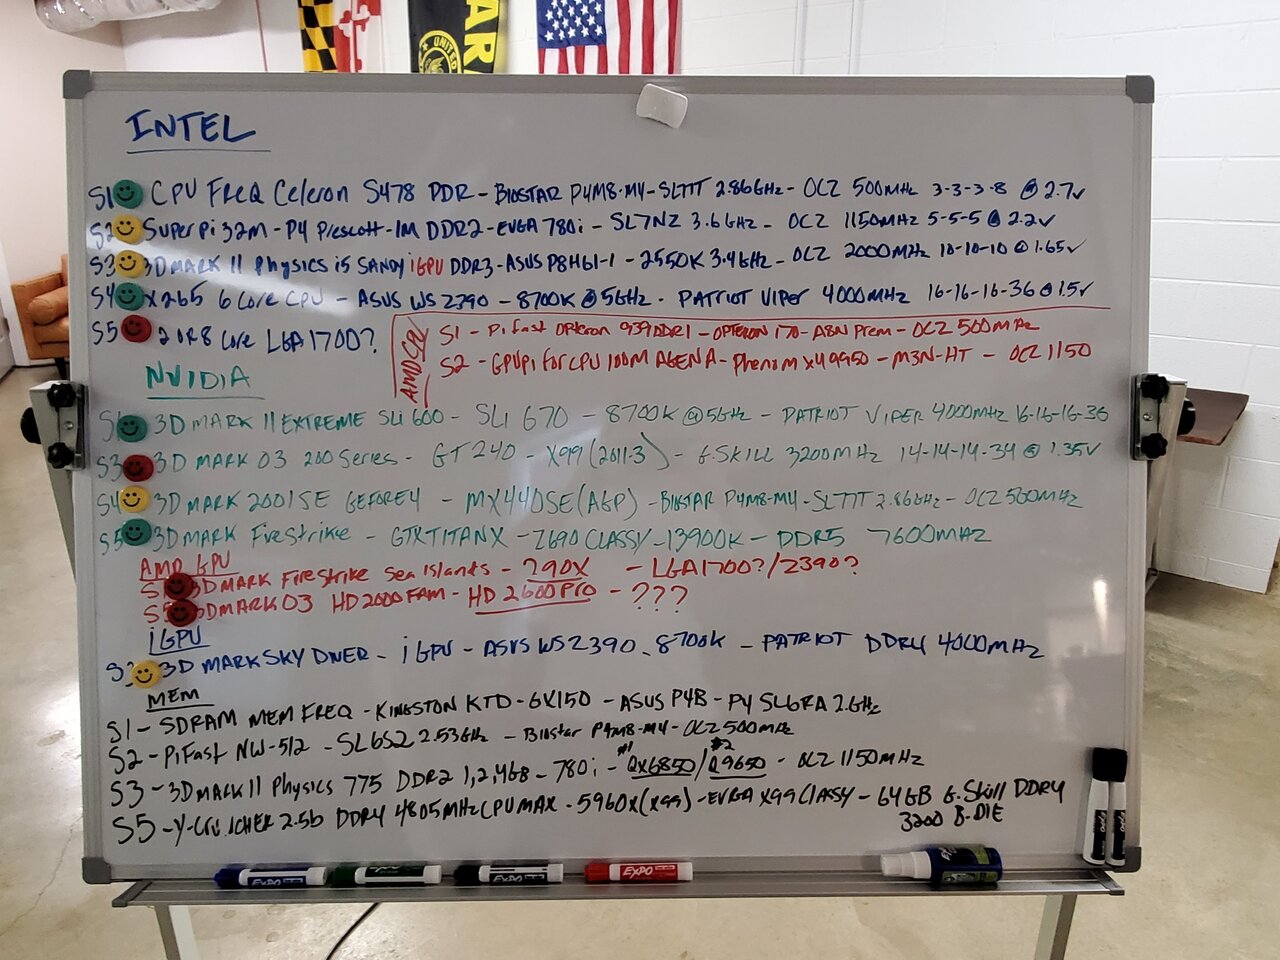 UNITED
INTEL
S1 CPU FREQ Celeron S478 DDR - BIOSTAR P4M8-M4 - SL7TT 2.86GHz - OCZ 500MHz 3-3-3-8 @ 2.7v
S2 Super Pi 32m - P4 Prescott - 1M DDR2 - EVGA 780i - SL7NZ 3.6GHz - OCZ 1150MHz 5-5-5 @ 2.2v
S3 3DMARK 11 Physics i5 SANDY iGPU DDR3 - ASUS P8H61-1 - 2550K 3.4GHz - OCZ 2000MHz 10-10-10 @ 1.65v
S4 X265 6 Core CPU - ASUS WS Z390 - 8700K @ 5GHz - PATRIOT VIPER 4000MHz 16-16-16-36 @ 1.5v
S5 2 OR 8 Core LGA1700?
AMD CPU
S1 - PiFast Opteron 939 DDR1 - OPTERON 170 - A8N Prem - OCZ 500MHz
S2 - GPUPi for CPU 100M AGENA - Phenom x4 9950 - M3N-HT - OCZ 1150
NVIDIA
3DMARK 11 EXTREME SLI 600 - SLI 670 - 8700K @ 5GHz - PATRIOT VIPER 4000MHz 16-16-16-36
S3 3D MARK 03 200 Series - GT 240 - X99 (2011-3) - G.SKILL 3200MHz 14-14-14-34 @ 1.35v
S4 3D MARK 2001SE GEFORE4 - MX440SE (AGP) - BIOSTAR P4M8-M4 - SL7TT 2.86GHz - OCZ 500MHz
S5 3DMARK FireStrike - GTX TITAN X - Z690 CLASSY - 13900K - DDR5 7600MHZ
AMD GPU
3DMARK FireStrike Sea Islands - 290X - LGA1700?/Z390?
S5 3DMARK03 HD2000 FAM - HD 2600 PRO - ???
iGPU
3D MARK SKY DIVER - iGPU - ASUS WS Z390 - 8700K - PATRIOT DDR4 4000MHz
MEM
S1 - SDRAM MEM FREQ - KINGSTON KTD-GX150 - ASUS P4B - P4 SL6RA 2.GHz
S2 - PiFast NW-512 - SL6S2 2.53GHz - Biostar P4M8-M4 - OCZ 500MHz
S3 - 3DMARK 11 Physics 775 DDR2 1,2,4GB - 780i - #1 QX6850 / #2 Q9650 - OCZ 1150MHz
S5 - Y-CRUNCHER 2.5b DDR4 4805MHz CPU MAX - 5960X (X99) - EVGA X99 CLASSY - 64GB G.Skill DDR4
3200 B-DIE
EXPO
EXPO
EXPO
EXPO